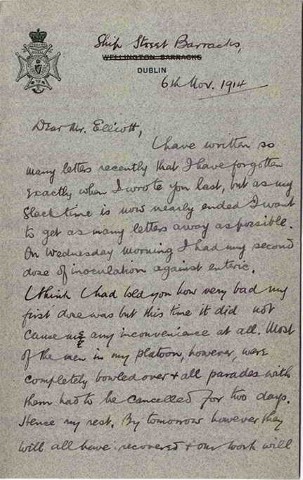 Ship Street Barracks,
WELLINGTON BARRACKS
DUBLIN
6th Nov. 1914
Dear Mr. Elliott,
I have written so
many letters recently that I have forgotten
exactly when I wrote you last, but as my
slack time is now nearly ended I want
to get as many letters away as possible.
On Wednesday morning I had my second
dose of inoculation against enteric.
I think I had told you how very bad my
first dose was but this time it did not
cause me any inconvenience at all. Most
of the men in my platoon, however, were
completely bowled over & all parades with
them had to be cancelled for two days.
Hence my rest. By tomorrow however they
will all have recovered & our work will